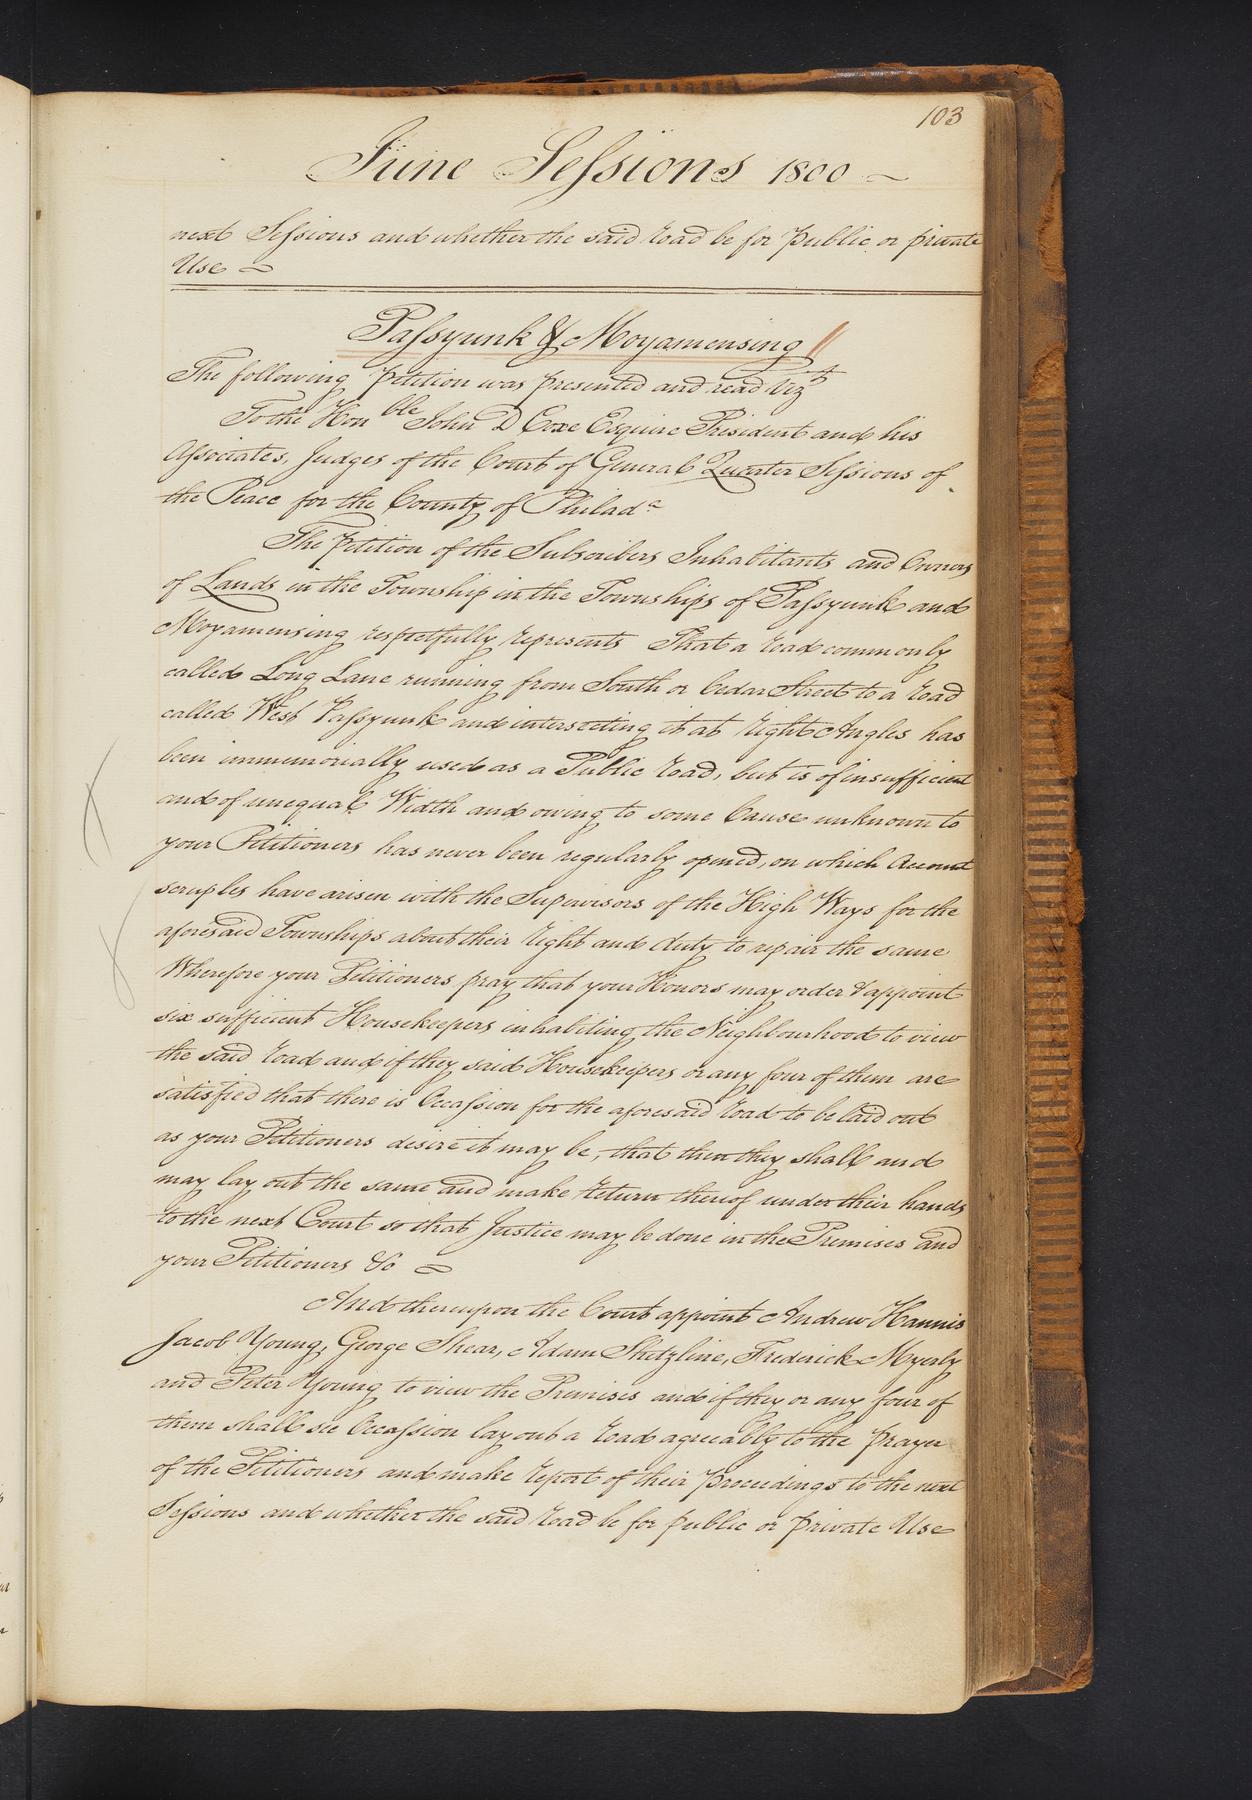 103
June Sessions 1800
next Sessions and whether the said road be for public or private
Use
Passyunk & Moyamensing
The following petition was presented and read Vizt
To the Honble John D Coxe Esquire President and his
Associates, Judges of the Court of General Quarter Sessions of
the Peace for the County of Philada
The petition of the Subscribers Inhabitants and Owners
of Lands in the Township in the Townships of Passyunk and
Moyamensing respectfully represents That a road commonly
called Long Lane running from South or Cedar Street to a road
called West Passyunk and intersecting it at right Angles has
been immemorially used as a Public road, but is of insufficient
and of unequal Width and owing to some Cause unknown to
your Petitioners has never been regularly opened, on which Account
scruples have arisen with the Supervisors of the High Ways for the
aforesaid Townships about their right and duty to repair the same
Wherefore your Petitioners pray that your Honors may order & appoint
six sufficient Housekeepers inhabiting the Neighbourhood to view
the said road and if they said Housekeepers or any four of them are
satisfied that there is Occassion for the aforesaid road to be laid out
as your Petitioners desire it may be, that then they shall and
may lay out the same and make return thereof under their hands
to the next Court so that Justice may be done in the Premises and
your Petitioners &c
And thereupon the Court appoint Andrew Hannis
Jacob Young, George Shear, Adam Shetzline, Frederick Myerly
and Peter Young to view the Premises and if they or any four of
them shall see Occassion lay out a road agreeably to the prayer
of the Petitioners and make report of their proceedings to the next
Sessions and whether the said road be for public or private Use